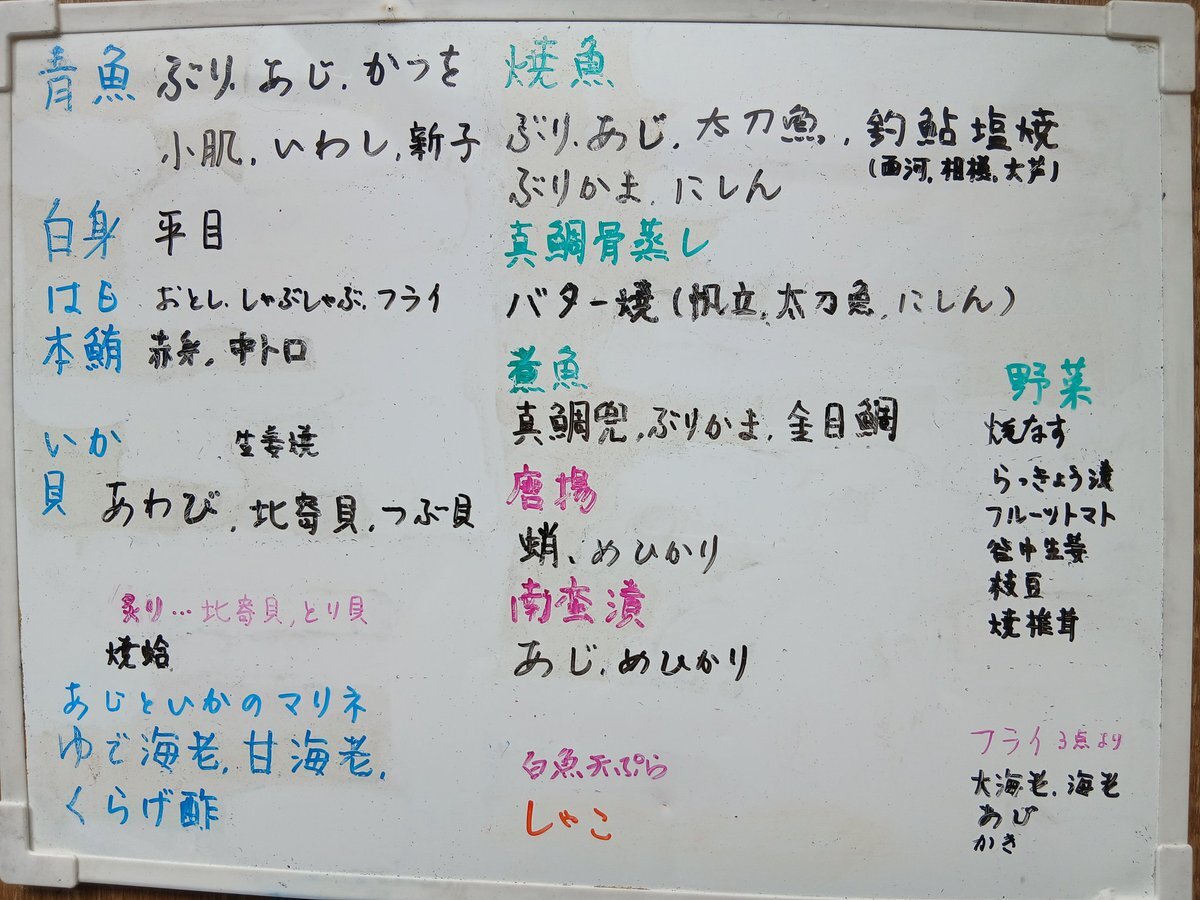 青魚 ぶり、あじ、かつを
小肌、いわし、新子
白身 平目
はも おとし、しゃぶしゃぶ、フライ
本鮪 赤身、中トロ
いか 生姜焼
貝 あわび、北寄貝、つぶ貝
炙り…北寄貝、とり貝
焼蛤
あじといかのマリネ
ゆで海老、甘海老、
くらげ酢
焼魚
ぶり、あじ、太刀魚、釣鮎塩焼
(西河、相模、大芦)
ぶりかま、にしん
真鯛骨蒸し
バター焼(帆立、太刀魚、にしん)
煮魚
真鯛兜、ぶりかま、金目鯛
唐揚
蛸、めひかり
南蛮漬
あじ、めひかり
白魚天ぷら
しゃこ
野菜
焼なす
らっきょう漬
フルーツトマト
谷中生姜
枝豆
焼椎茸
フライ 3点より
大海老、海老
あじ
かき